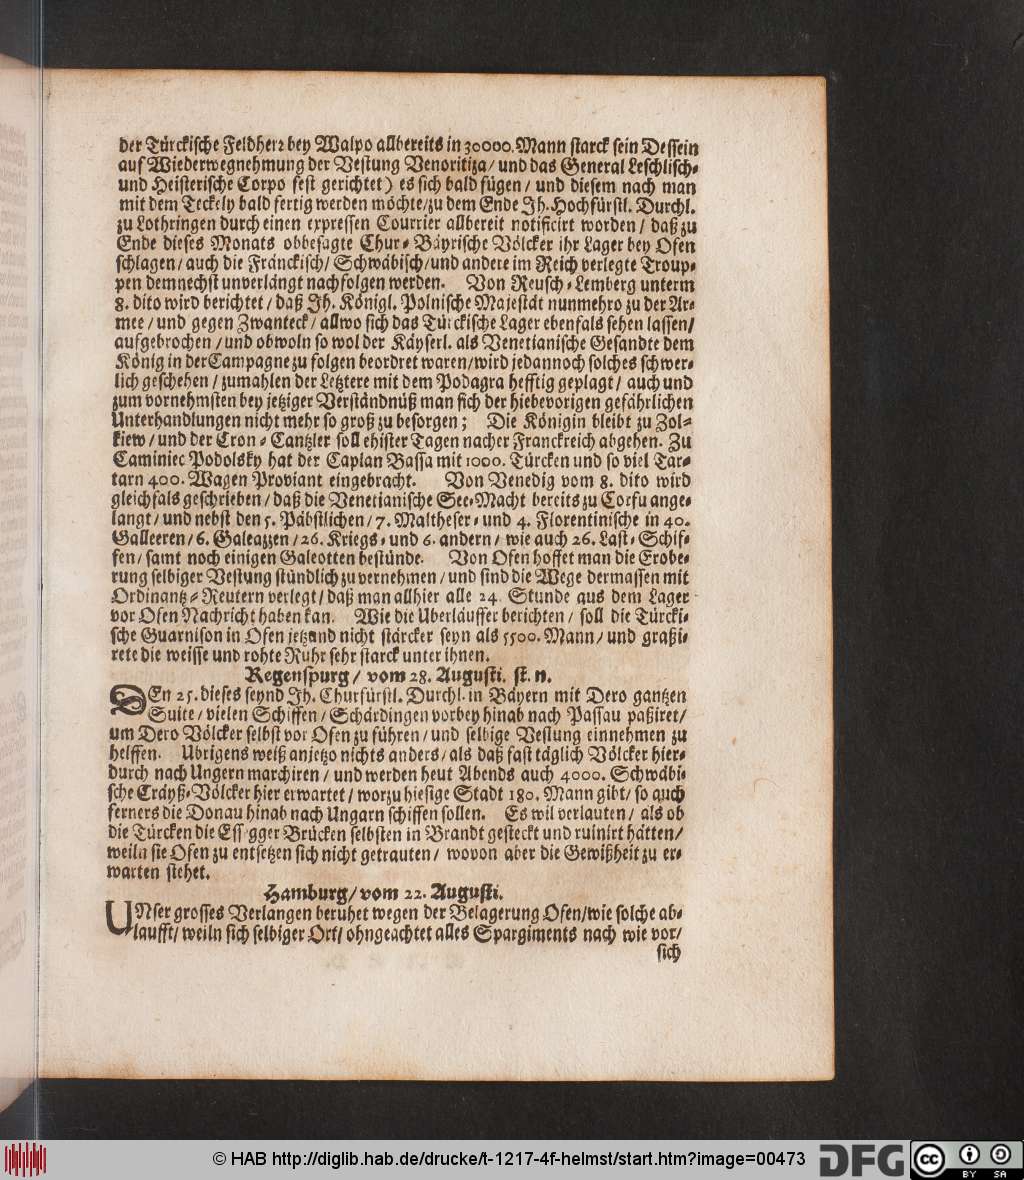 der Türckische Feldherꝛ bey Walpo allbereits in 30000. Mann starck sein Dessein
auf Wiederwegnehmung der Vestung Venoritiza/ und das General Leschlisch-
und Heisterische Corpo fest gerichtet) es sich bald fügen/ und diesem nach man
mit dem Teckely bald fertig werden möchte/zu dem Ende Jh. Hochfürstl. Durchl.
zu Lothringen durch einen expressen Courrier allbereit notificirt worden/ daß zu
Ende dieses Monats obbesagte Chur-Bäyrische Völcker ihr Lager bey Ofen
schlagen/ auch die Fränckisch/ Schwäbisch/und andere im Reich verlegte Troup-
pen demnechst unverlängt nachfolgen werden. Von Reusch-Lemberg unterm
8. dito wird berichtet/ daß Jh. Königl. Polnische Majestät nunmehro zu der Ar-
mee/ und gegen Zwanteck/ allwo sich das Türckische Lager ebenfals sehen lassen/
aufgebrochen/ und obwoln so wol der Käyserl. als Venetianische Gesandte dem
König in der Campagne zu folgen beordret waren/wird jedannoch solches schwer-
lich geschehen/ zumahlen der Letztere mit dem Podagra hefftig geplagt/ auch und
zum vornehmsten bey jetziger Verständnüß man sich der hiebevorigen gefährlichen
Unterhandlungen nicht mehr so groß zu besorgen; Die Königin bleibt zu Zol-
kiew/ und der Cron-Cantzler soll ehister Tagen nacher Franckreich abgehen. Zu
Caminiec Podolsky hat der Caplan Bassa mit 1000. Türcken und so viel Tar-
tarn 400. Wagen Proviant eingebracht. Von Venedig vom 8. dito wird
gleichfals geschrieben/ daß die Venetianische See-Macht bereits zu Corfu ange-
langt/ und nebst den 5. Päbstlichen/ 7. Maltheser- und 4. Florentinische in 40.
Galleeren/ 6. Galeazzen/ 26. Kriegs- und 6. andern/ wie auch 26. Last-Schif-
fen/ samt noch einigen Galeotten bestünde. Von Ofen hoffet man die Erobe-
rung selbiger Vestung stündlich zu vernehmen/ und sind die Wege dermassen mit
Ordinantz-Reutern verlegt/ daß man allhier alle 24. Stunde aus dem Lager
vor Ofen Nachricht haben kan. Wie die Uberläuffer berichten/ soll die Türcki-
sche Guarnison in Ofen jetzund nicht stärcker seyn als 5500. Mann/ und graßi-
rete die weisse und rohte Ruhr sehr starck unter ihnen.
Regenspurg/ vom 28. Augusti. st. n.
DEn 25. dieses seynd Jh. Churfürstl. Durchl. in Bäyern mit Dero gantzen
Suite/ vielen Schiffen/ Schärdingen vorbey hinab nach Passau paßiret/
um Dero Völcker selbst vor Ofen zu führen/ und selbige Vestung einnehmen zu
helffen. Ubrigens weiß anjetzo nichts anders/ als daß fast täglich Völcker hier-
durch nach Ungern marchiren/ und werden heut Abends auch 4000. Schwäbi-
sche Cräyß-Völcker hier erwartet/ worzu hiesige Stadt 180. Mann gibt/ so auch
ferners die Donau hinab nach Ungarn schiffen sollen. Es wil verlauten/ als ob
die Türcken die Essegger Brücken selbsten in Brandt gesteckt und ruinirt hätten/
weiln sie Ofen zu entsetzen sich nicht getrauten/ wovon aber die Gewißheit zu er-
warten stehet.
Hamburg/ vom 22. Augusti.
UNser grosses Verlangen beruhet wegen der Belagerung Ofen/wie solche ab-
laufft/ weiln sich selbiger Ort/ ohngeachtet alles Spargiments nach wie vor/
sich
© HAB http://diglib.hab.de/drucke/t-1217-4f-helmst/start.htm?image=00473
DFG
cc BY SA